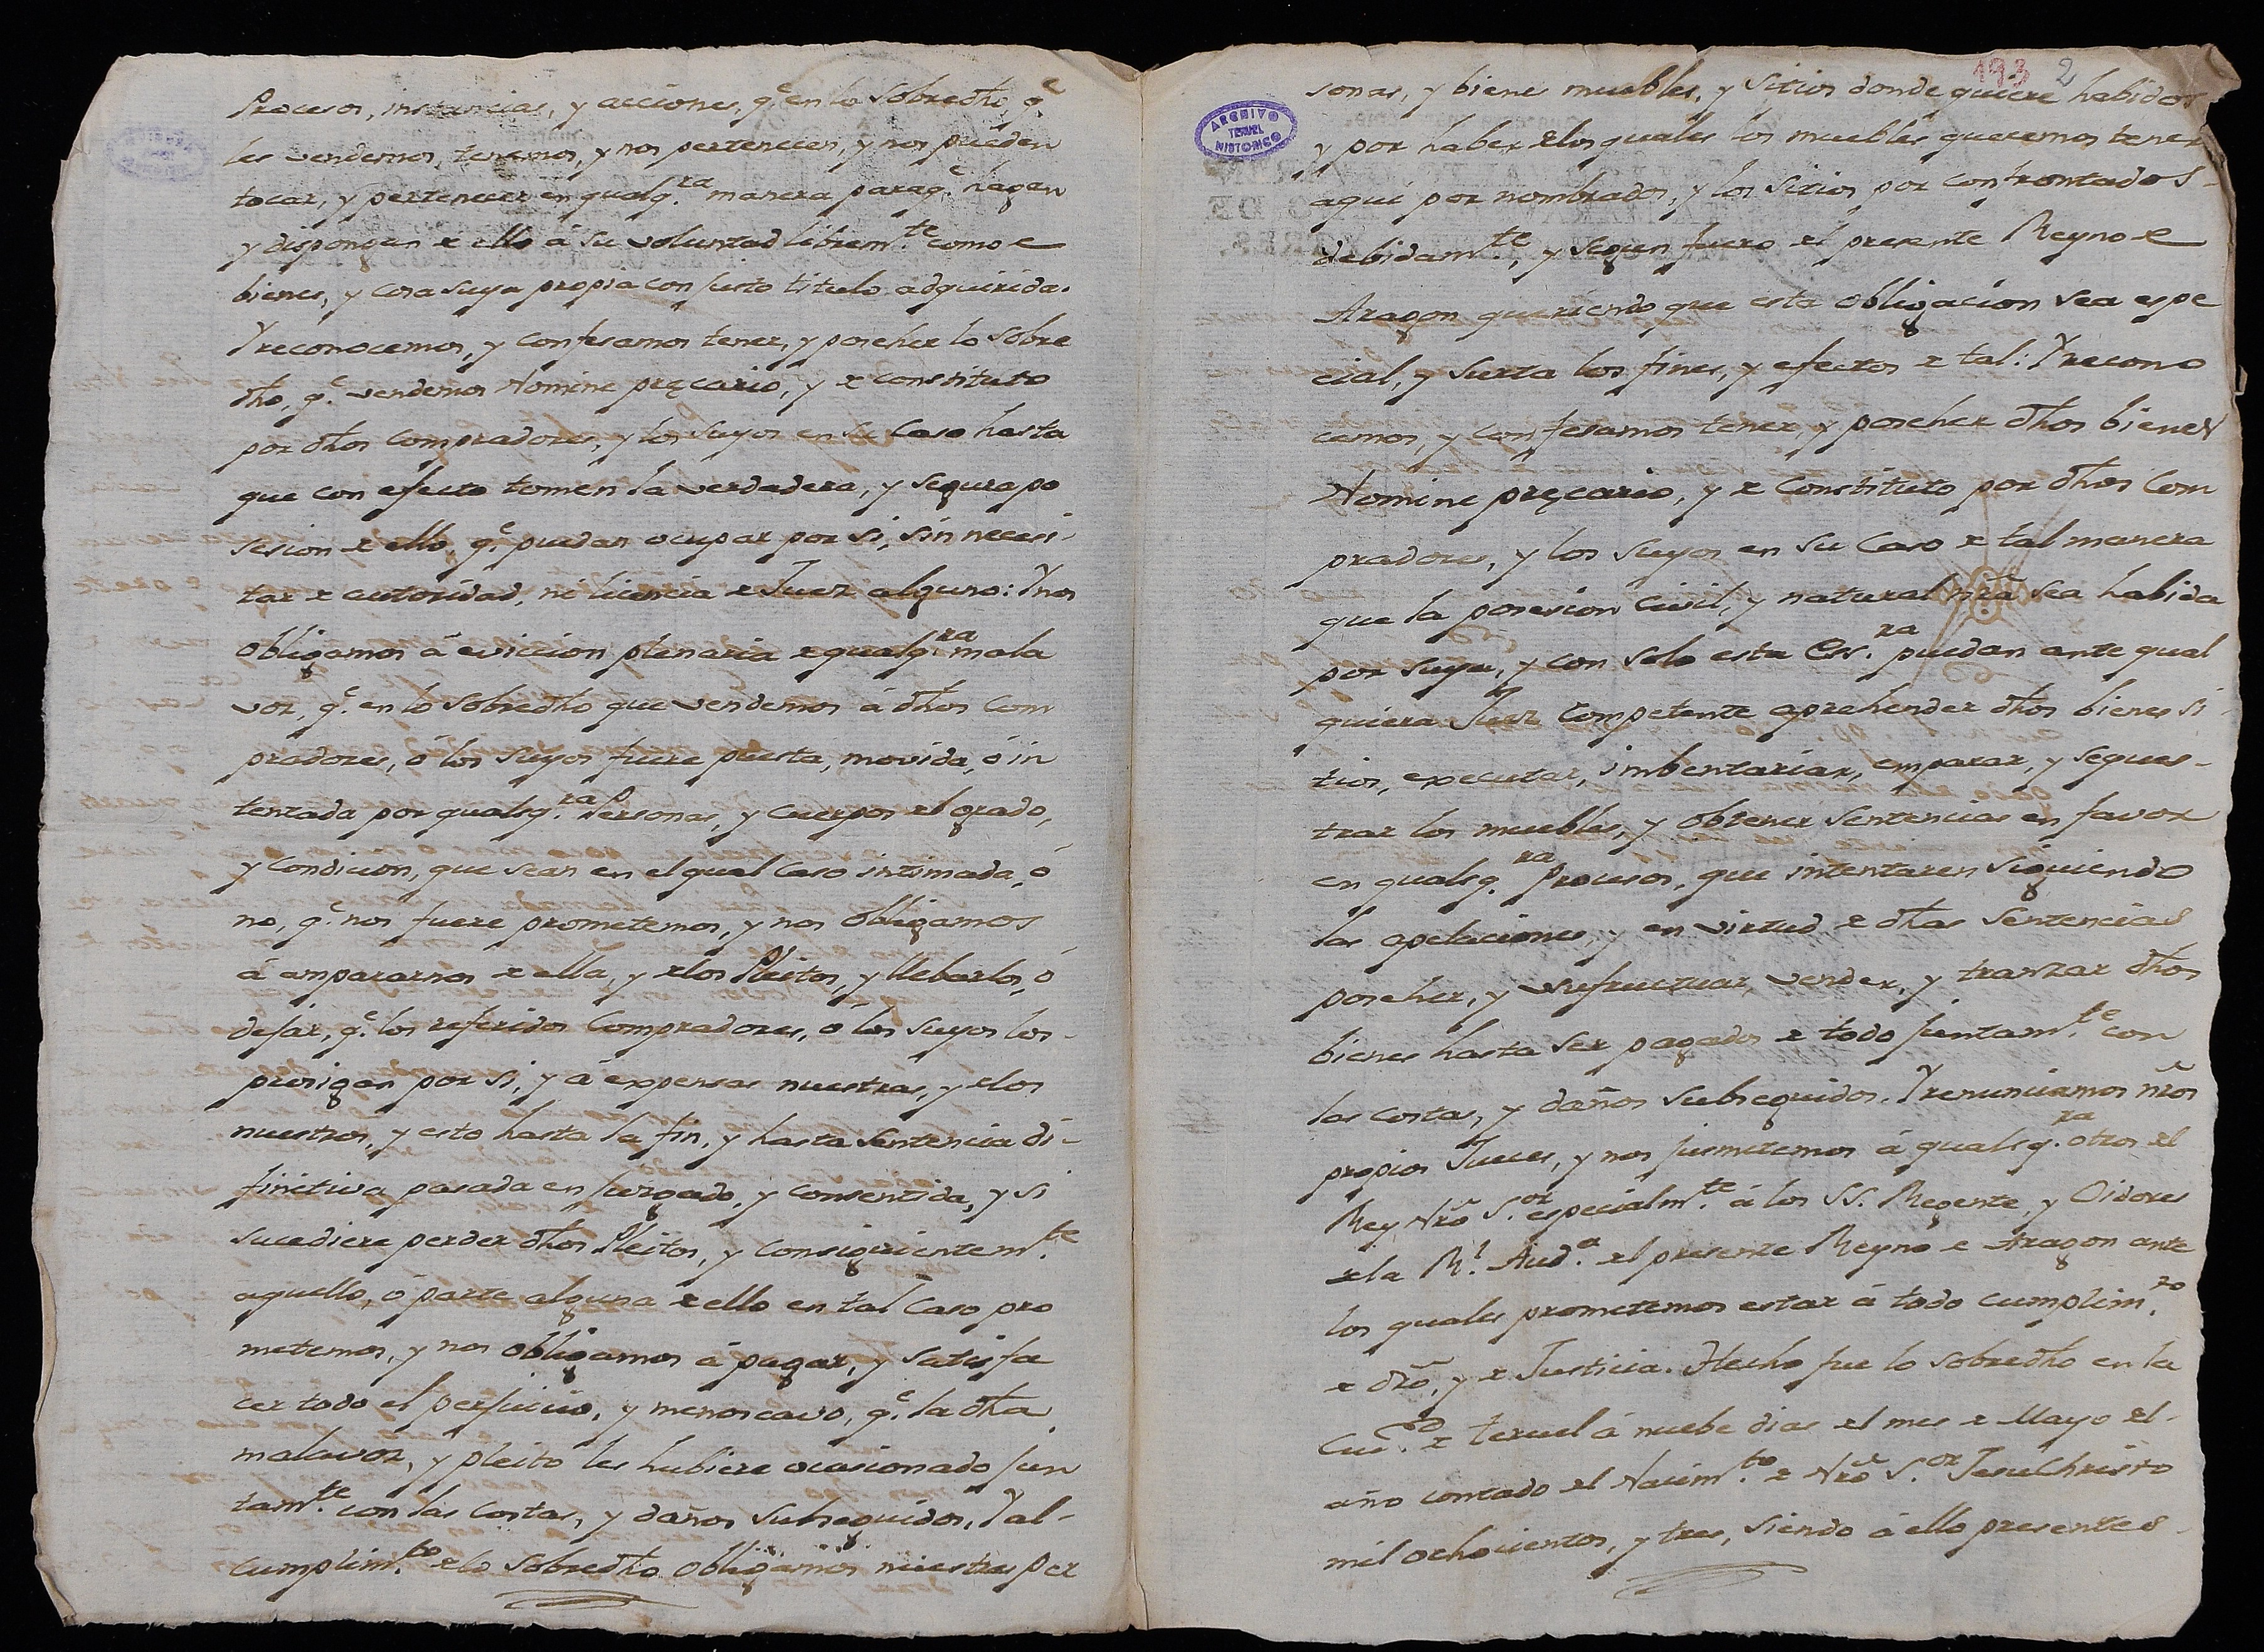 Procesos, instancias, y acciones, q.e en lo Sobredho, q.e
les vendemos, tenemos, y nos pertenecen, y nos pueden
tocar, y pertenecer en qualq.ra manera paraq.e hagan
y dispongan de ello á su voluntad librem.te como de
bienes, y cosa suya propia con justo titulo adquirida.
Y reconocemos, y confesamos tener, y poseher lo Sobre
dho, q.e vendemos Nomine precario, y de constituto
por dhos Compradores, y los Suyos en su Caso hasta
que con efecto tomen la verdadera, y segura po
sesion de ello, q.e puedan ocupar por si, sin necesi-
tar de autoridad, ni licencia de Juez alguno: Y nos
Obligamos á eviccion plenaria de qualq.ra mala
voz, q.e en lo Sobredho que vendemos á dhos Com
pradores, ó los Suyos fuere puesta, movida, ó in
tentada por qualsq.ra Personas, y Cuerpos del grado,
y Condicion, que sean en el qual Caso intimada, ó
no, q.e nos fuere prometemos, y nos Obligamos
á ampararnos de ella, y de los Pleitos, y llebarlos, ó
dejar, q.e los referidos Compradores, o los Suyos los-
prosigan por si, y á expensas nuestras, y de los
nuestros, y esto hasta la fin, y hasta Sentencia di-
finitiva pasada en Juzgado, y Consentida, y si
sucediere perder dhos Pleitos, y Consiguientem.te
aquello, ó parte alguna de ello en tal Caso pro
metemos, y nos Obligamos á pagar, y Satisfa
cer todo el perjuicio, y menoscavo, q.e la dha
malavoz, y pleito les hubiere ocasionado Jun
tam.te con las Costas, y daños Subseguidos, Y al-
Cumplim.to de lo Sobredho Obligamos nuestras Per
193 2
ARCHIVO
TERUEL
HISTORICO
sonas, y bienes muebles, y Sitios donde quiere habidos
y por haber de los quales los muebles queremos tener
aqui por nombrados, y los Sitios por Confrontados-
debidam.te, y Segun fuero del presente Reyno de
Aragon queriendo que esta Obligacion Sea espe
cial, y Surta los fines, y efectos de tal: Y recono
cemos, y confesamos tener, y poseher dhos bienes
Nomine precario, y de Constituto por dhos Com
pradores, y los Suyos en su Caso de tal manera
que la posesion Civil, y natural nrã Sea habida
por Suya, y con Solo esta Ess.ra puedan ante qual
quiera Juez Competente aprehender dhos bienes Si-
tios, executar, imbentariar, emparar, y Seques-
trar los muebles, y Obtener Sentencias en favor
en qualsq.ra Procesos, que intentaren Siguiendo
las apelaciones, y en virtud de dhas Sentencias
poseher, y usufructuar, vender, y tranzar dhos
bienes hasta Ser pagados de todo juntam.te con
las Costas, y daños Subseguidos. Y renunciamos nr̃os
propios Jueces, y nos jusmetemos á qualsq.ra otros del
Rey Nrõ S.or especialm.te á los SS. Regente, y Oidores
de la R.l Aud.a del presente Reyno de Aragon ante
los quales prometemos estar á todo cumplim.to
de drõ, y de Justicia. Hecho fue lo Sobredho en la
Ciu.d de Teruel á nuebe dias del mes de Mayo del-
año contado del Nacim.to de Nrõ S.or JesuChristo
mil ochocientos, y tres, Siendo á ello presentes-